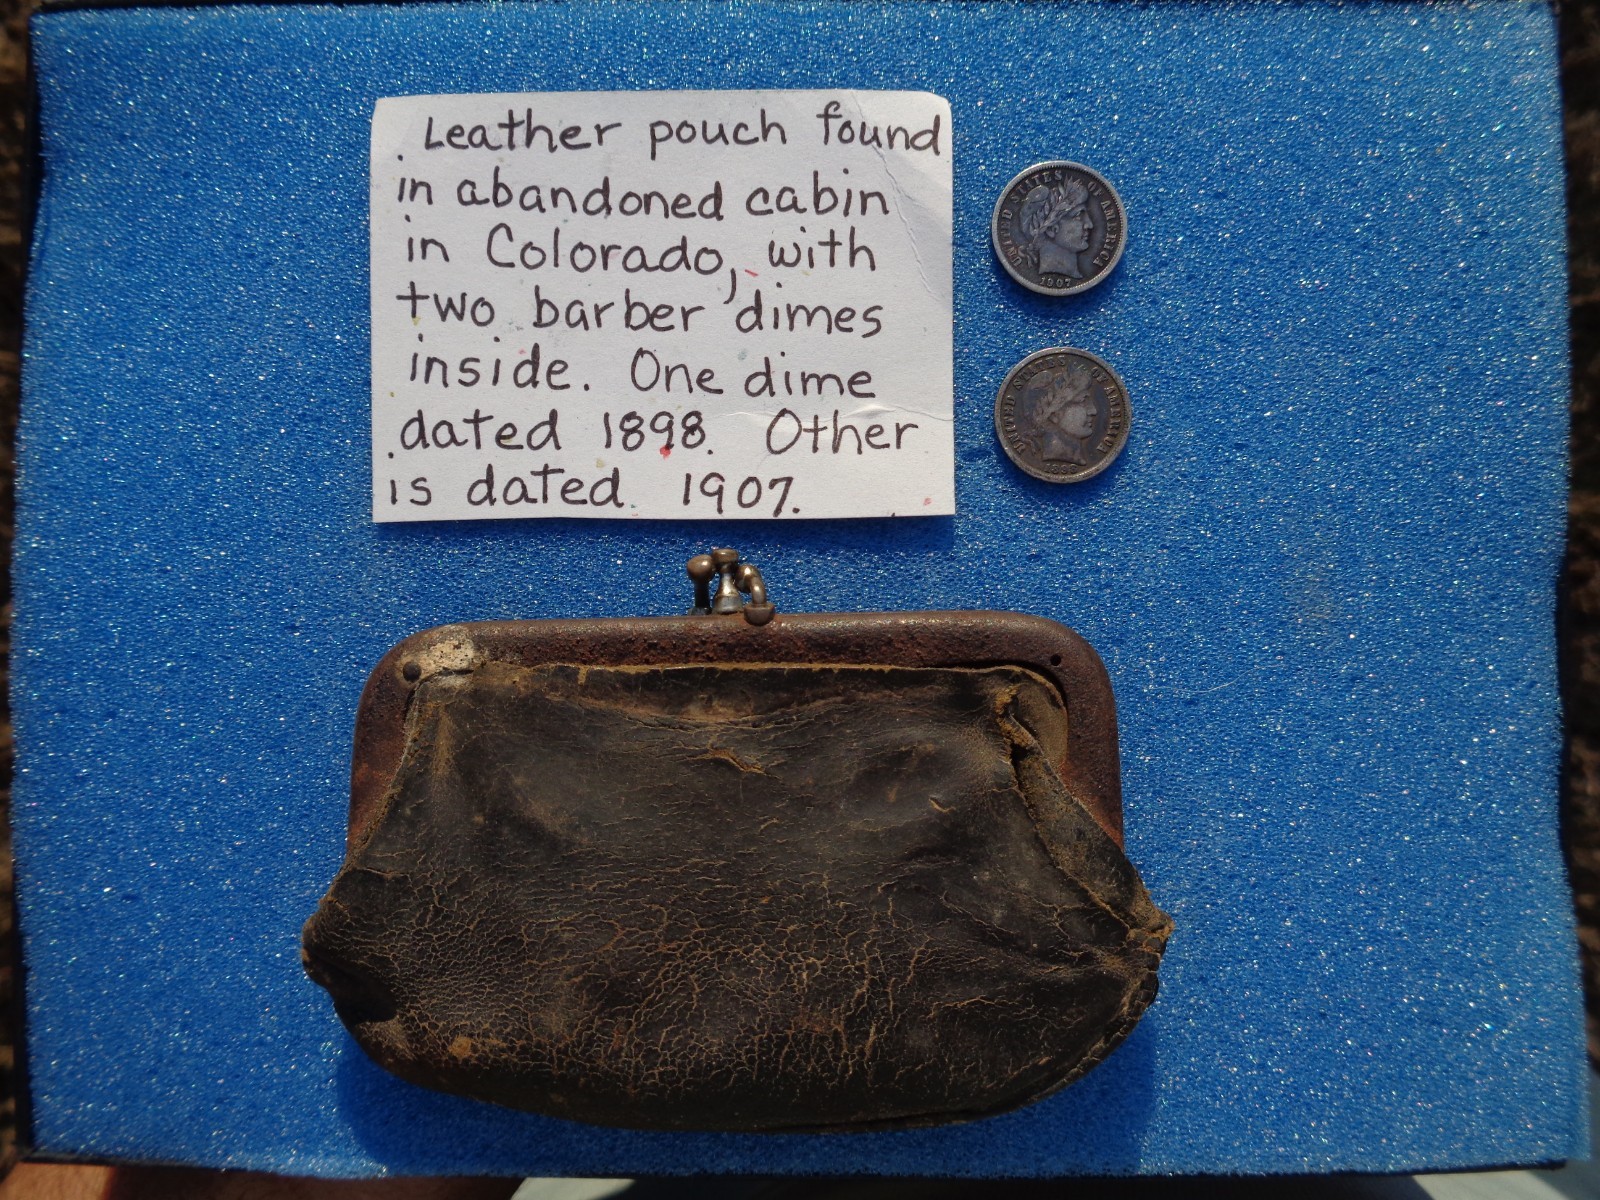 Leather pouch found
in abandoned cabin
in Colorado, with
two barber dimes
inside. One dime
dated 1898. Other
is dated 1907.
UNITED STATES OF AMERICA
1907
UNITED STATES OF AMERICA
1898